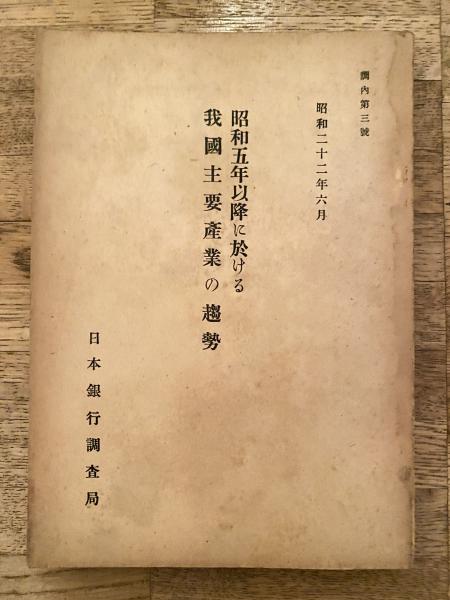 調内第三號
昭和二十二年六月
昭和五年以降に於ける
我國主要產業の趨勢
日本銀行調査局